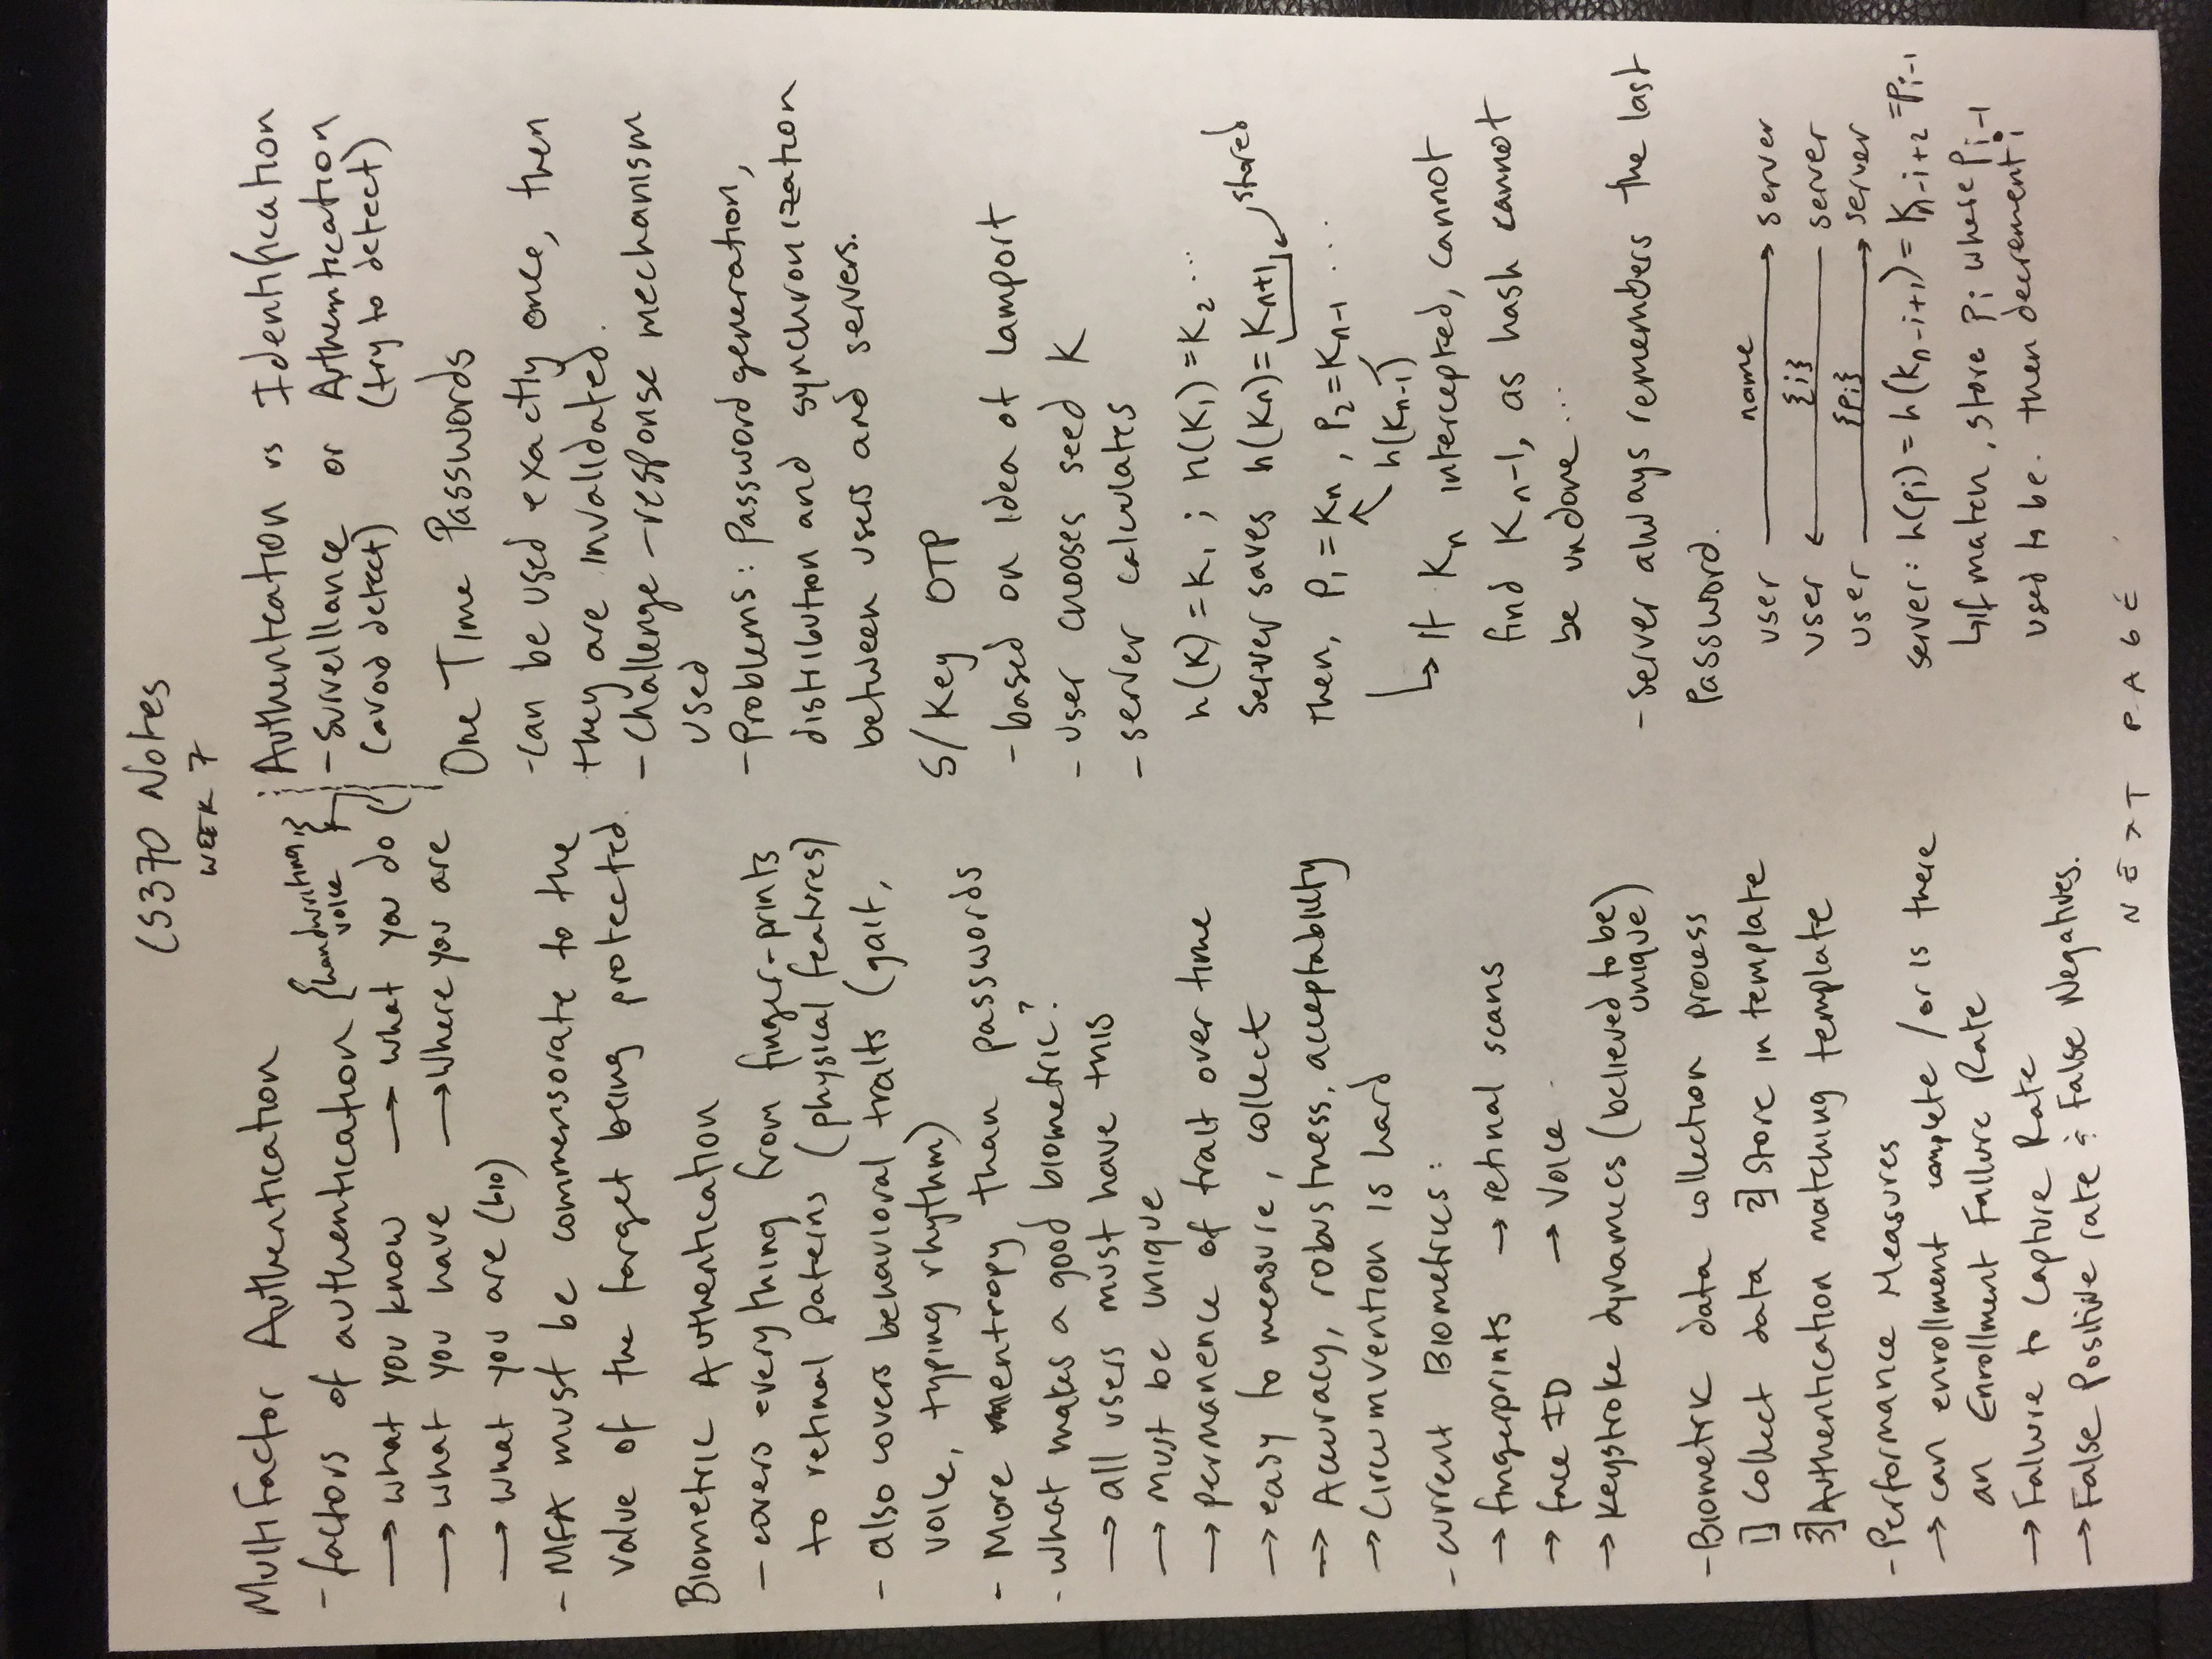 CS370 Notes
WEEK 7
Multifactor Authentication
- factors of authentication {handwriting,
voice}
→ what you know → what you do (
→ what you have → Where you are
→ what you are (bio)
- MFA must be commensorate to the
value of the target being protected.
Biometric Authentication
- covers everything from finger-prints
to retinal paterns (physical features)
- also covers behavioral traits (gait,
voice, typing rhythm)
- More entropy than passwords
- what makes a good biometric?
→ all users must have this
→ must be unique
→ permanence of trait over time
→ easy to measure, collect
→ Accuracy, robustness, acceptability
→ Circumvention is hard
- current Biometrics:
→ fingerprints → retinal scans
→ face ID → Voice
→ keystroke dynamics (believed to be
unique)
- Biometric data collection process
1] Collect data 2] Store in template
3] Authentication matching template
- Performance Measures
→ can enrollment complete / or is there
an Enrollment Failure Rate
→ Failure to Capture Rate
→ False Positive rate & False Negatives.
Authentcation vs Identification
- Surveillance or Authentication
(avoid detect) (try to detect)
One Time Passwords
- can be used exactly once, then
they are invalidated.
- Challenge - response mechanism
used
- Problems: Password generation,
distribution and synchronization
between users and servers.
S/Key OTP
- based on idea of lamport
- user chooses seed K
- server calculates
h(K) = K₁ ; h(K₁) = K₂ ...
Server saves h(Kn) = Kn+1 stored
then, P₁ = Kn , P₂ = Kn-1 ...
h(Kn-1)
↳ If Kn intercepted, cannot
find Kn-1, as hash cannot
be undone ...
- server always remembers the last
Password.
user name → server
user ← {i} server
user {pi} → server
server: h(pi) = h(kn-i+1) = Kn-i+2 = Pi-1
↳ if match, store Pi where Pi-1
used to be. then decrement i
NEXT PAGE